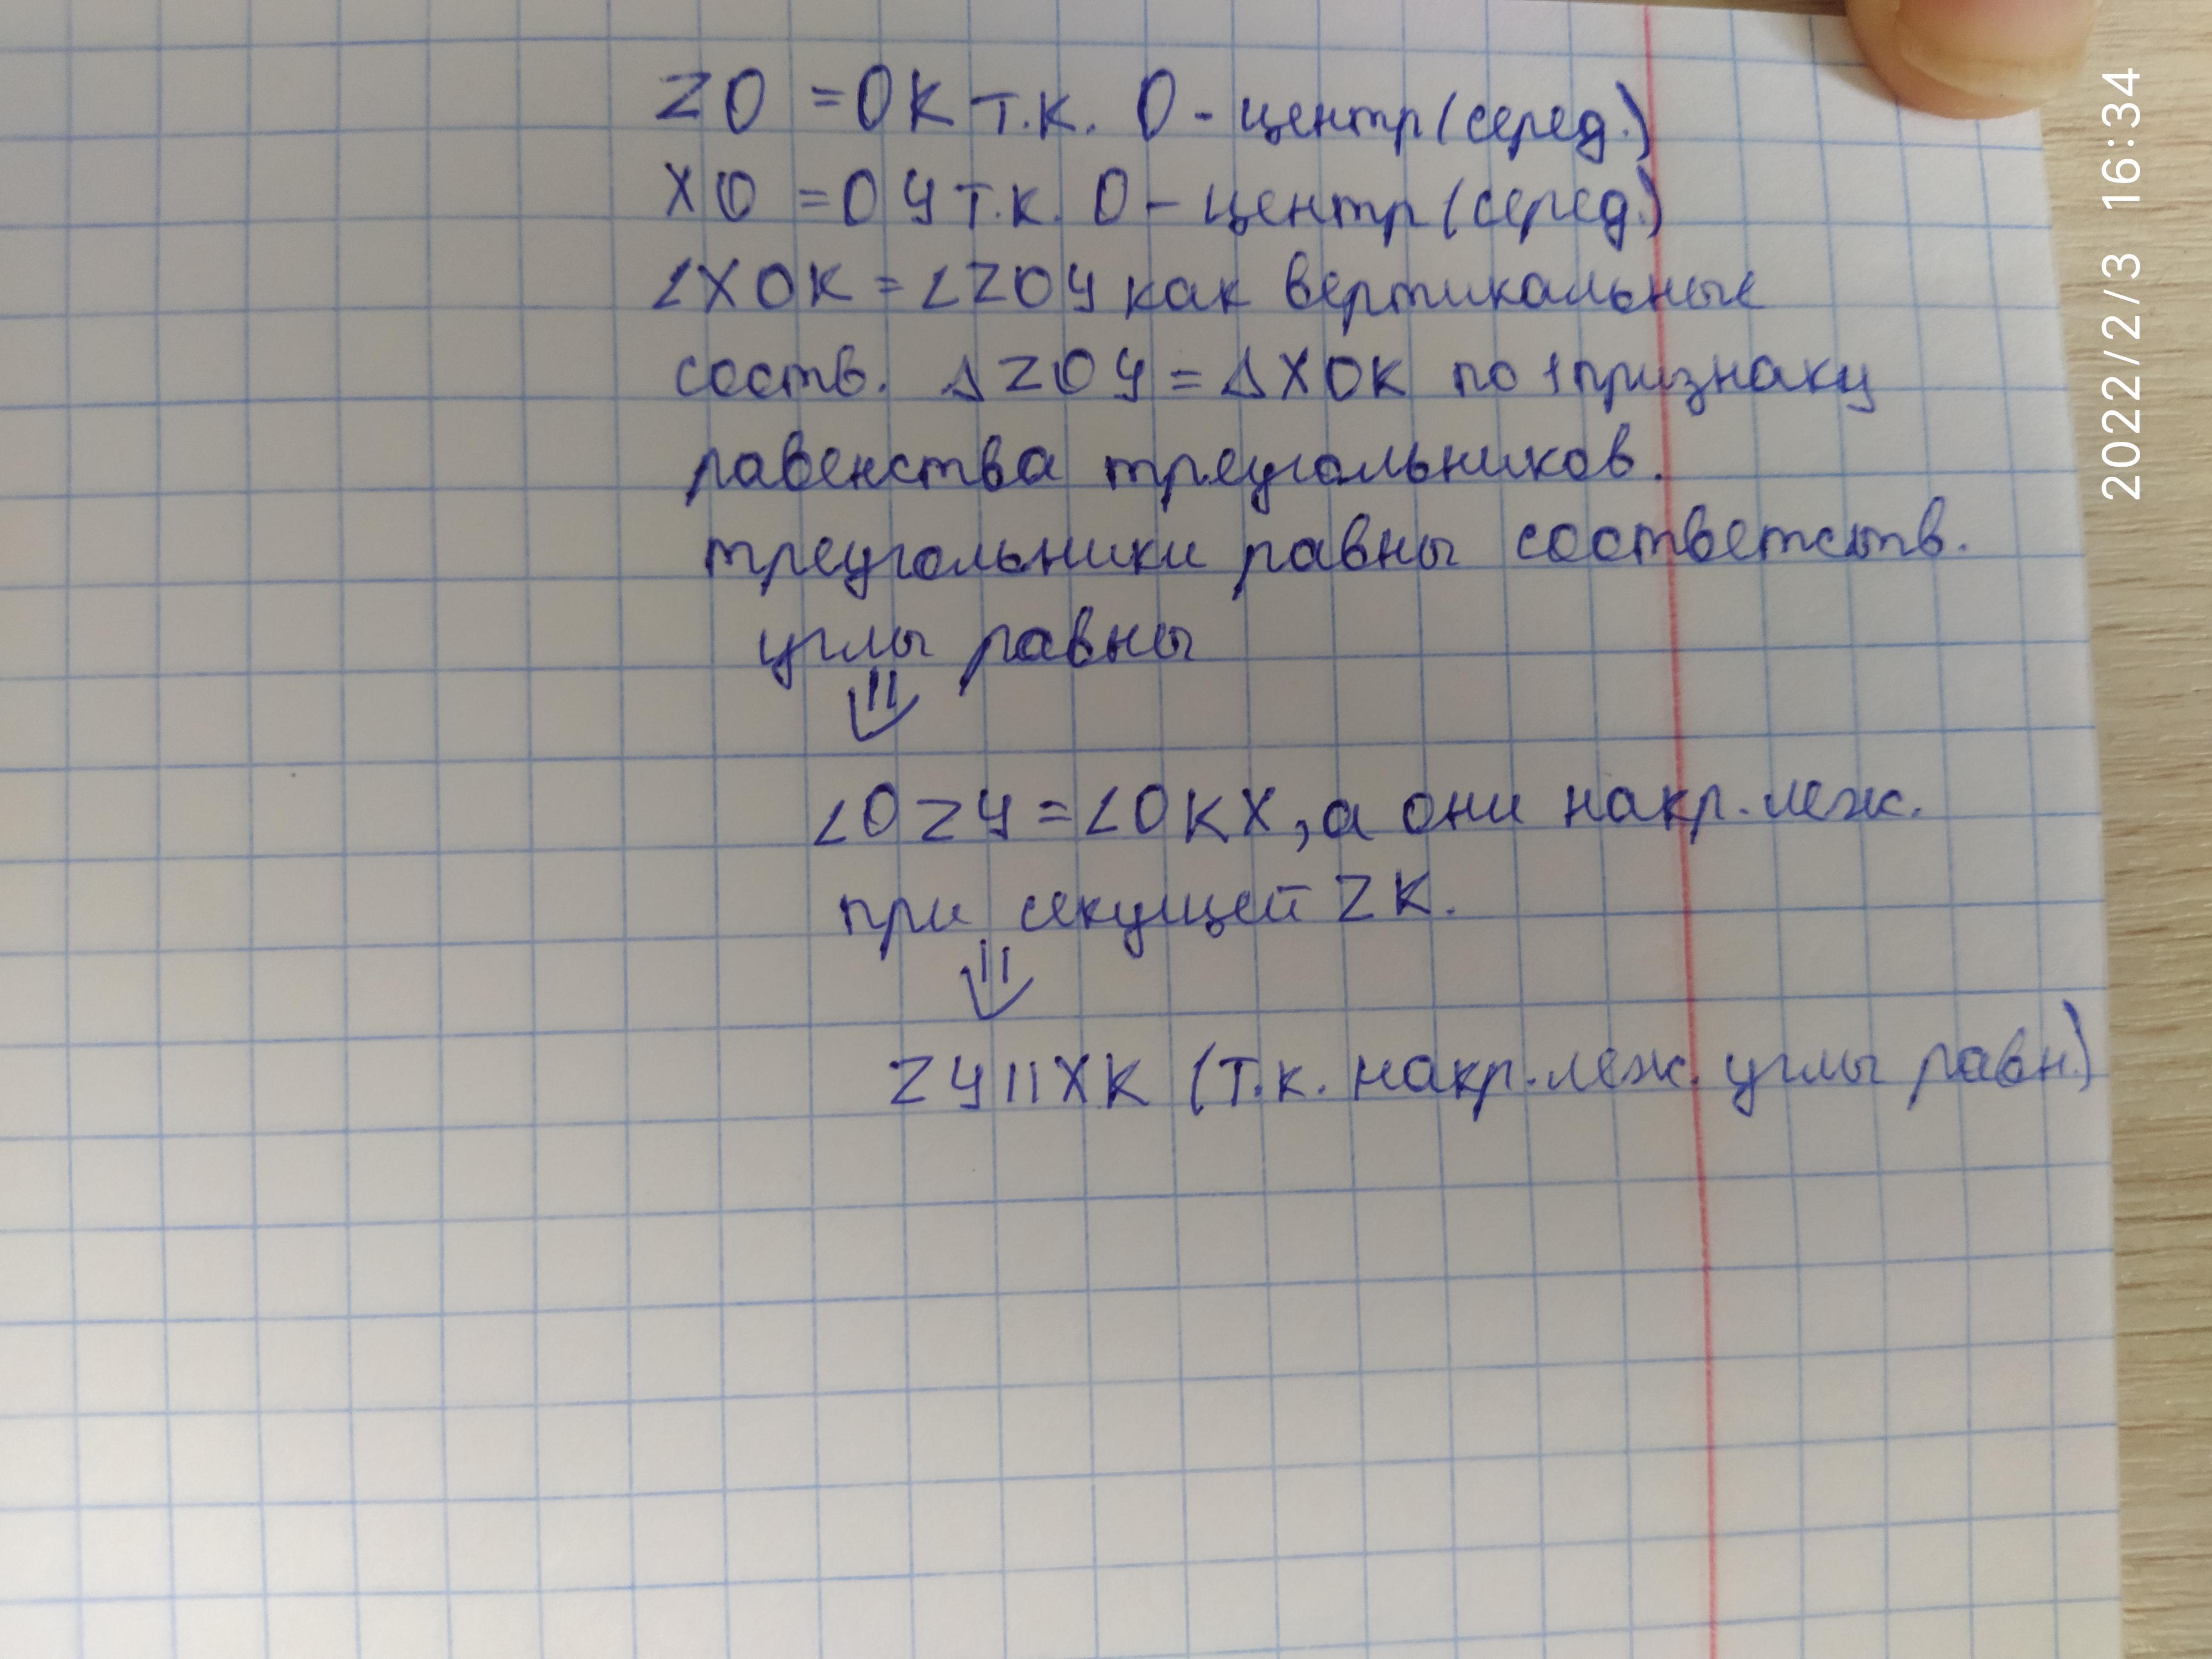 ZO = OK т.к. O - центр (серед.)
XO = OY т.к. O - центр (серед.)
∠XOK = ∠ZOY как вертикальные
соств. ΔZOY = ΔXOK по 1 признаку
равенства треугольников.
треугольники равны соответств.
углы равны
⇓
∠OZY = ∠OKX, а они накр. леж.
при секущей ZK.
⇓
ZY || XK (т.к. накр. леж. углы равн.)
2022/2/3 16:34